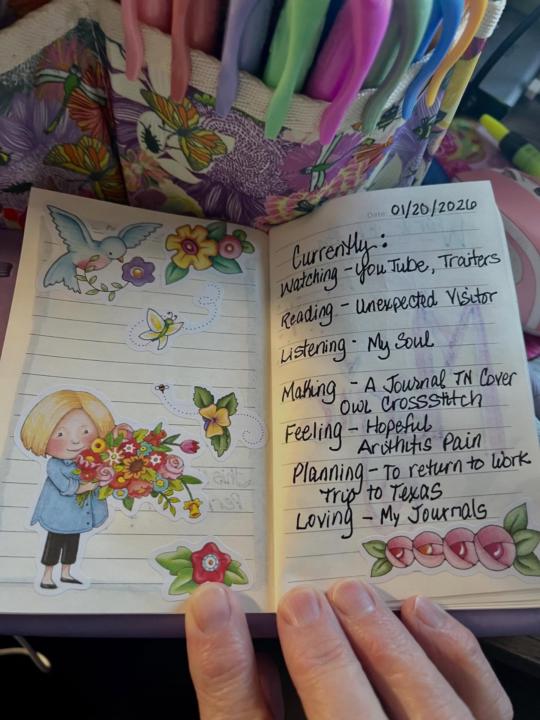 Date: 01/20/2026
Currently:
Watching - YouTube, Traiters
Reading - Unexpected Visitor
Listening - My Soul
Making - A Journal TN Cover
Owl Crossstitch
Feeling - Hopeful
Arithitis Pain
Planning - To return to Work
Trip to Texas
Loving - My Journals